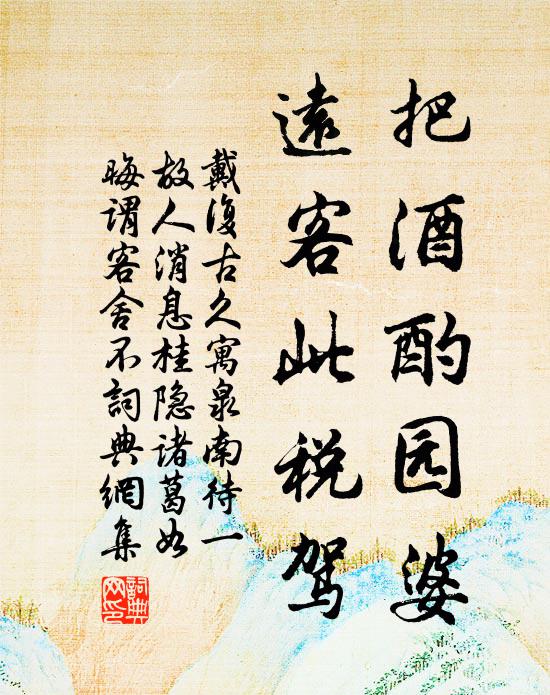 把酒酌园婆
遠客此税驾
戴復古久寓泉南待一
故人消息桂隐诸葛如
晦谓客舍不詞典網集
詞典
网印